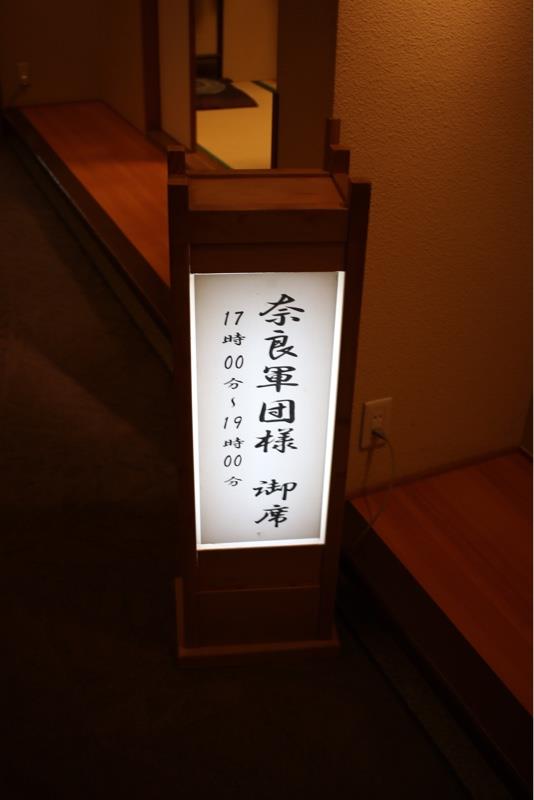 奈良軍団様 御席
17時00分～19時00分